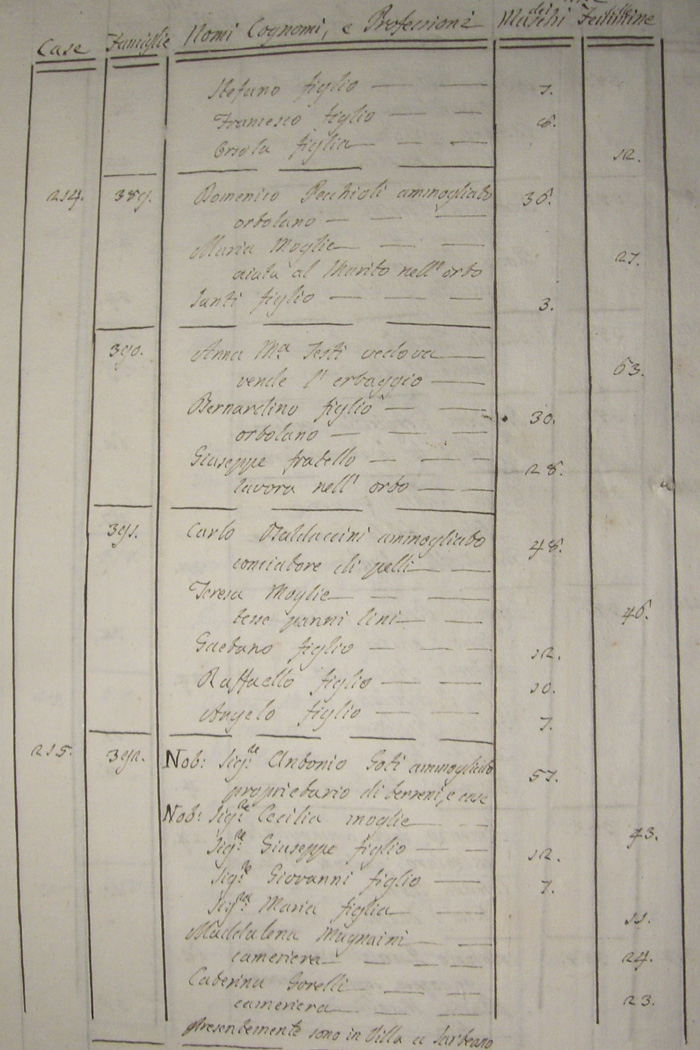 Case Famiglie Nomi Cognomi, e Professioni dei Maschi delle Femmine
Stefano figlio — — 7.
Francesco figlio — — 8.
Orsola figlia — — 12.
214. 389. Domenico Pecchioli ammogliato 36.
ortolano — — —
Maria Moglie — — — 27.
aiuta al Marito nell' orto
Santi figlio — — — 3.
390. Anna Mª Testi vedova — 63.
vende l' erbaggio —
Bernardino figlio — — 30.
ortolano — — —
Giuseppe fratello — — — 28.
lavora nell' orto — —
391. Carlo Baldaccini ammogliato 48.
conciatore di pelli — —
Teresa Moglie — — — 46.
tesse panni lini — —
Gaetano figlio — — — 12.
Raffaello figlio — — 10.
Angelo figlio — — — 7.
215. 392. Nob: Sig.re Antonio Goti ammogliato 57.
proprietario di terreni, e case
Nob: Sig.ra Cecilia moglie — — 43.
Sig.re Giuseppe figlio — — 12.
Sig.re Giovanni figlio — — 7.
Sig.ra Maria figlia — — 11.
Maddalena Mugnaini — — 24.
cameriera — — —
Caterina Sorelli — — 23.
cameriera — — —
presentemente sono in Villa a